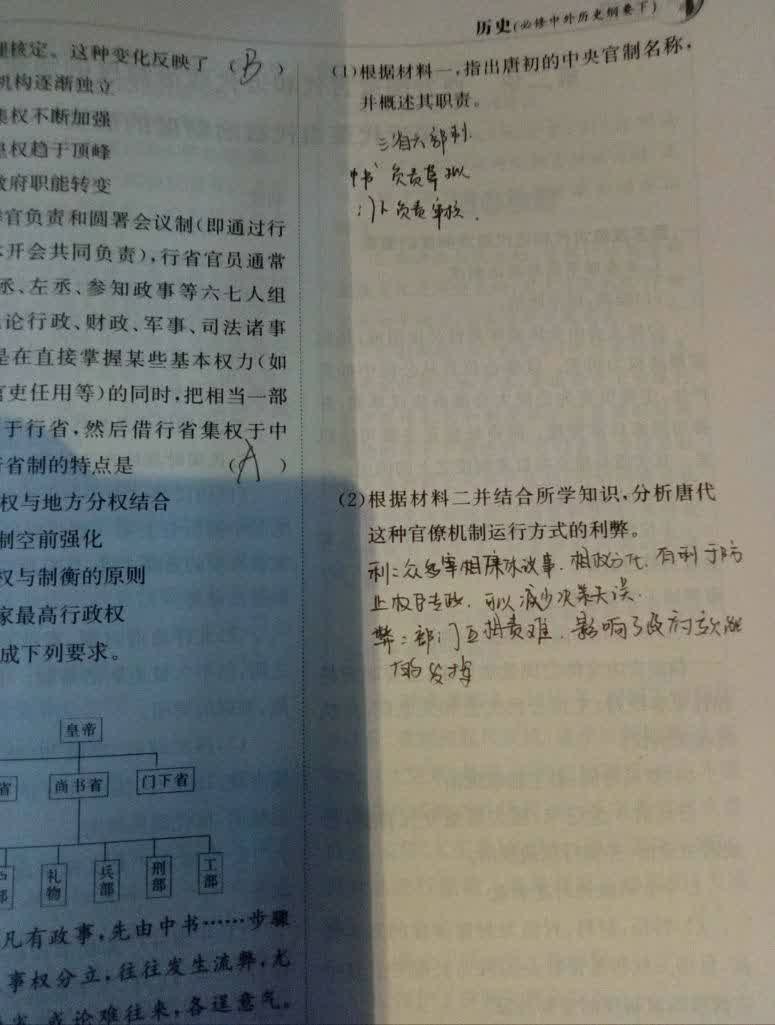 历史(必修中外历史纲要下)
理核定。这种变化反映了 (B)
机构逐渐独立
集权不断加强
皇权趋于顶峰
政府职能转变
官负责和圆署会议制(即通过行
开会共同负责),行省官员通常
丞、左丞、参知政事等六七人组
论行政、财政、军事、司法诸事
是在直接掌握某些基本权力(如
官吏任用等)的同时,把相当一部
于行省,然后借行省集权于中
行省制的特点是 (A)
权与地方分权结合
制空前强化
权与制衡的原则
家最高行政权
成下列要求。
皇帝
省 尚书省 门下省
部 礼物 兵部 刑部 工部
凡有政事,先由中书……步骤
事权分立,往往发生流弊,尤
或论难往来,各逞意气。
(1)根据材料一,指出唐初的中央官制名称,
并概述其职责。
三省六部制
中书 负责草拟
门下负责审核.
(2)根据材料二并结合所学知识,分析唐代
这种官僚机制运行方式的利弊。
利:众多宰相集体议事.相权分化.有利于防
止权臣专政.可以减少决策失误.
弊:部门互相责难.影响了政府效能
的发挥